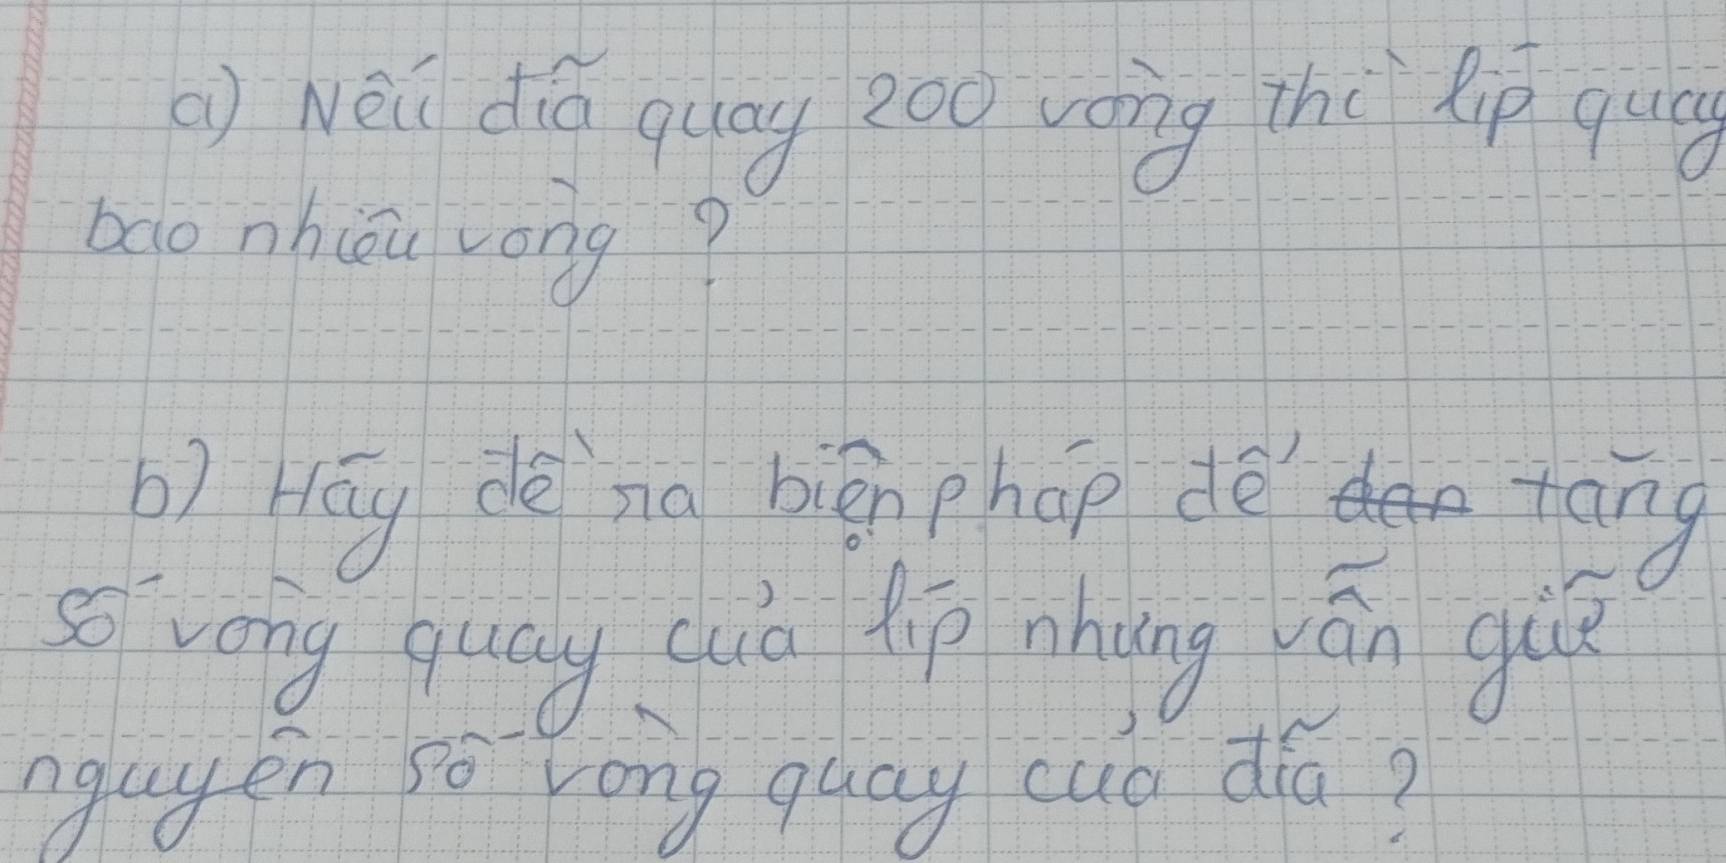 a) Nếu đĩa quay 200 vòng thì líp quay
bao nhiêu vòng ?
b) Hãy đề ra biện pháp để tăng
số vòng quay của líp nhưng vẫn giữ
nguyên số vòng quay của đĩa ?